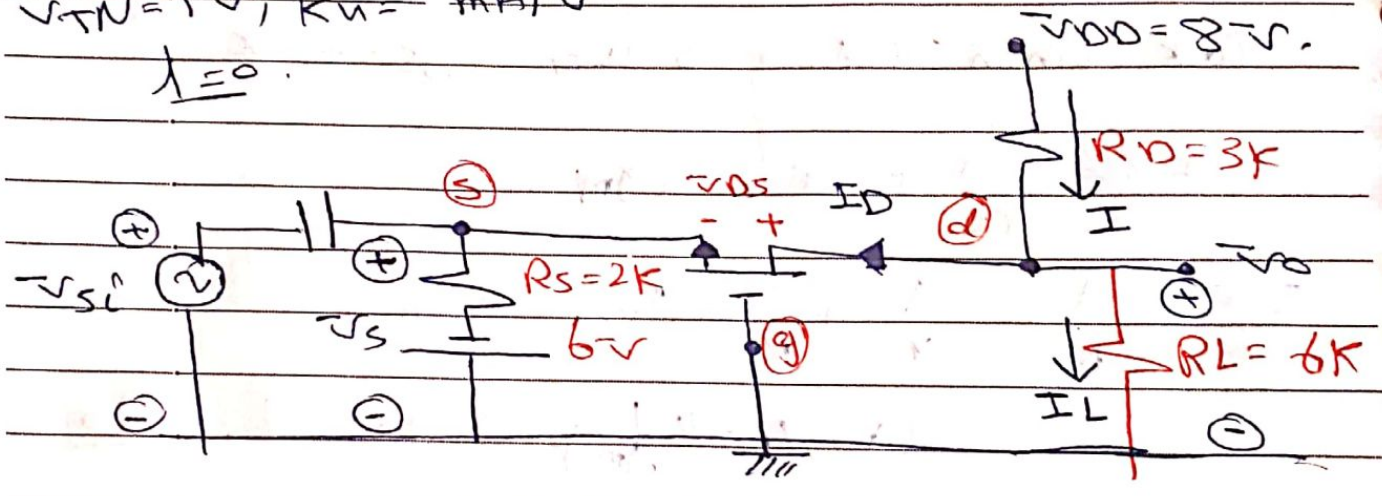 VTN=1V, Kn= mA/V
λ=0.
VDD=8V.
RD=3K
I
S
VDS
- +
ID
d
Vo
+
+
+
Vsi
RS=2K
Vs
6V
g
RL=6K
IL
-
-
-